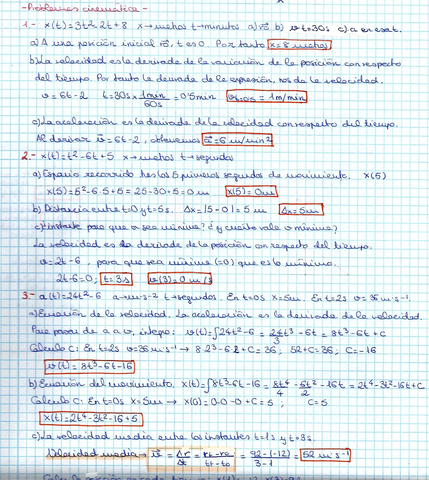 - Problemas cinemática -
1.- x(t)=3t²-2t+8 x→metros t→minutos a) r⃗₀ b) v t=30s c) a en esat.
a) A una posición inicial r⃗₀, t es 0. Por tanto x=8 metros
b) La velocidad es la derivada de la variación de la posición con respecto
del tiempo. Por tanto la derivada de la expresión, nos da la velocidad.
v=6t-2 t=30s × 1min/60s = 0'5min v t=0'5 = 1m/min
c) La aceleración es la derivada de la velocidad con respecto del tiempo.
Al derivar v⃗=6t-2, obtenemos a⃗=6 m/min²
2.- x(t)=t²-6t+5 x→metros t→segundos
a) Espacio recorrido tras los 5 primeros segundos de movimiento. x(5)
x(5)=5²-6·5+5=25-30+5=0m x(5)=0m
b) Distancia entre t=0 y t=5s. Δx=|5-0|=5m Δx=5m
c) ¿Instante para que v sea mínima? ¿y cuánto vale v mínima?
La velocidad es la derivada de la posición con respecto del tiempo.
v=2t-6, para que sea mínima (=0) que es lo mínimo.
2t-6=0; t=3s v(3)=0 m/s
3.- a(t)=24t²-6 a→m·s⁻² t→segundos. En t=0s x=5m. En t=2s v=36 m·s⁻¹.
a) Ecuación de la velocidad. La aceleración es la derivada de la velocidad.
Para pasar de a a v, integro: v(t)=∫24t²-6 = 24t³/3 -6t = 8t³-6t+C
Cálculo C: En t=2s v=36m·s⁻¹ → 8·2³-6·2+C=36; 52+C=36; C=-16
v(t)=8t³-6t-16
b) Ecuación del movimiento. x(t)=∫8t³-6t-16 = 8t⁴/4 - 6t²/2 -16t = 2t⁴-3t²-16t+C
Cálculo C: En t=0s x=5m → x(0)=0-0-0+C=5; C=5
x(t)=2t⁴-3t²-16t+5
c) La velocidad media entre los instantes t=1s y t=3s.
Velocidad media → v⃗ = Δr/Δt = rt-r₀/tt-t₀ = 92-(-12)/3-1 = 52 m·s⁻¹